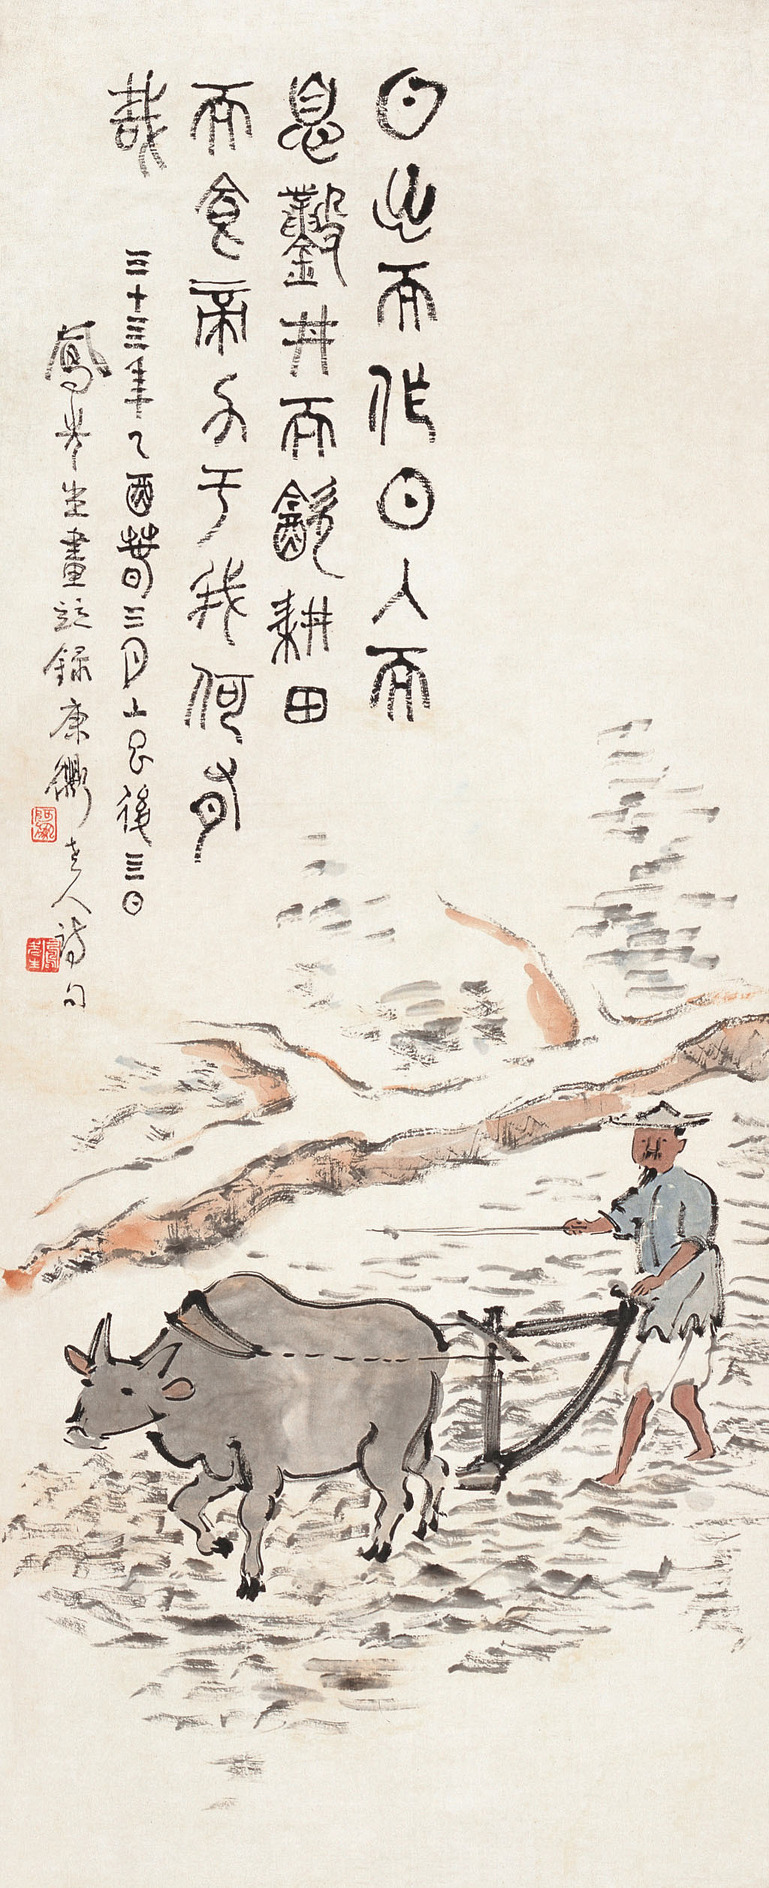 日出而作日入而
息鑿井而飲耕田
而食帝力于我何有
哉
三十亖年乙酉春三月上巳後三日
鳳先生畫並錄康衢老人詩句